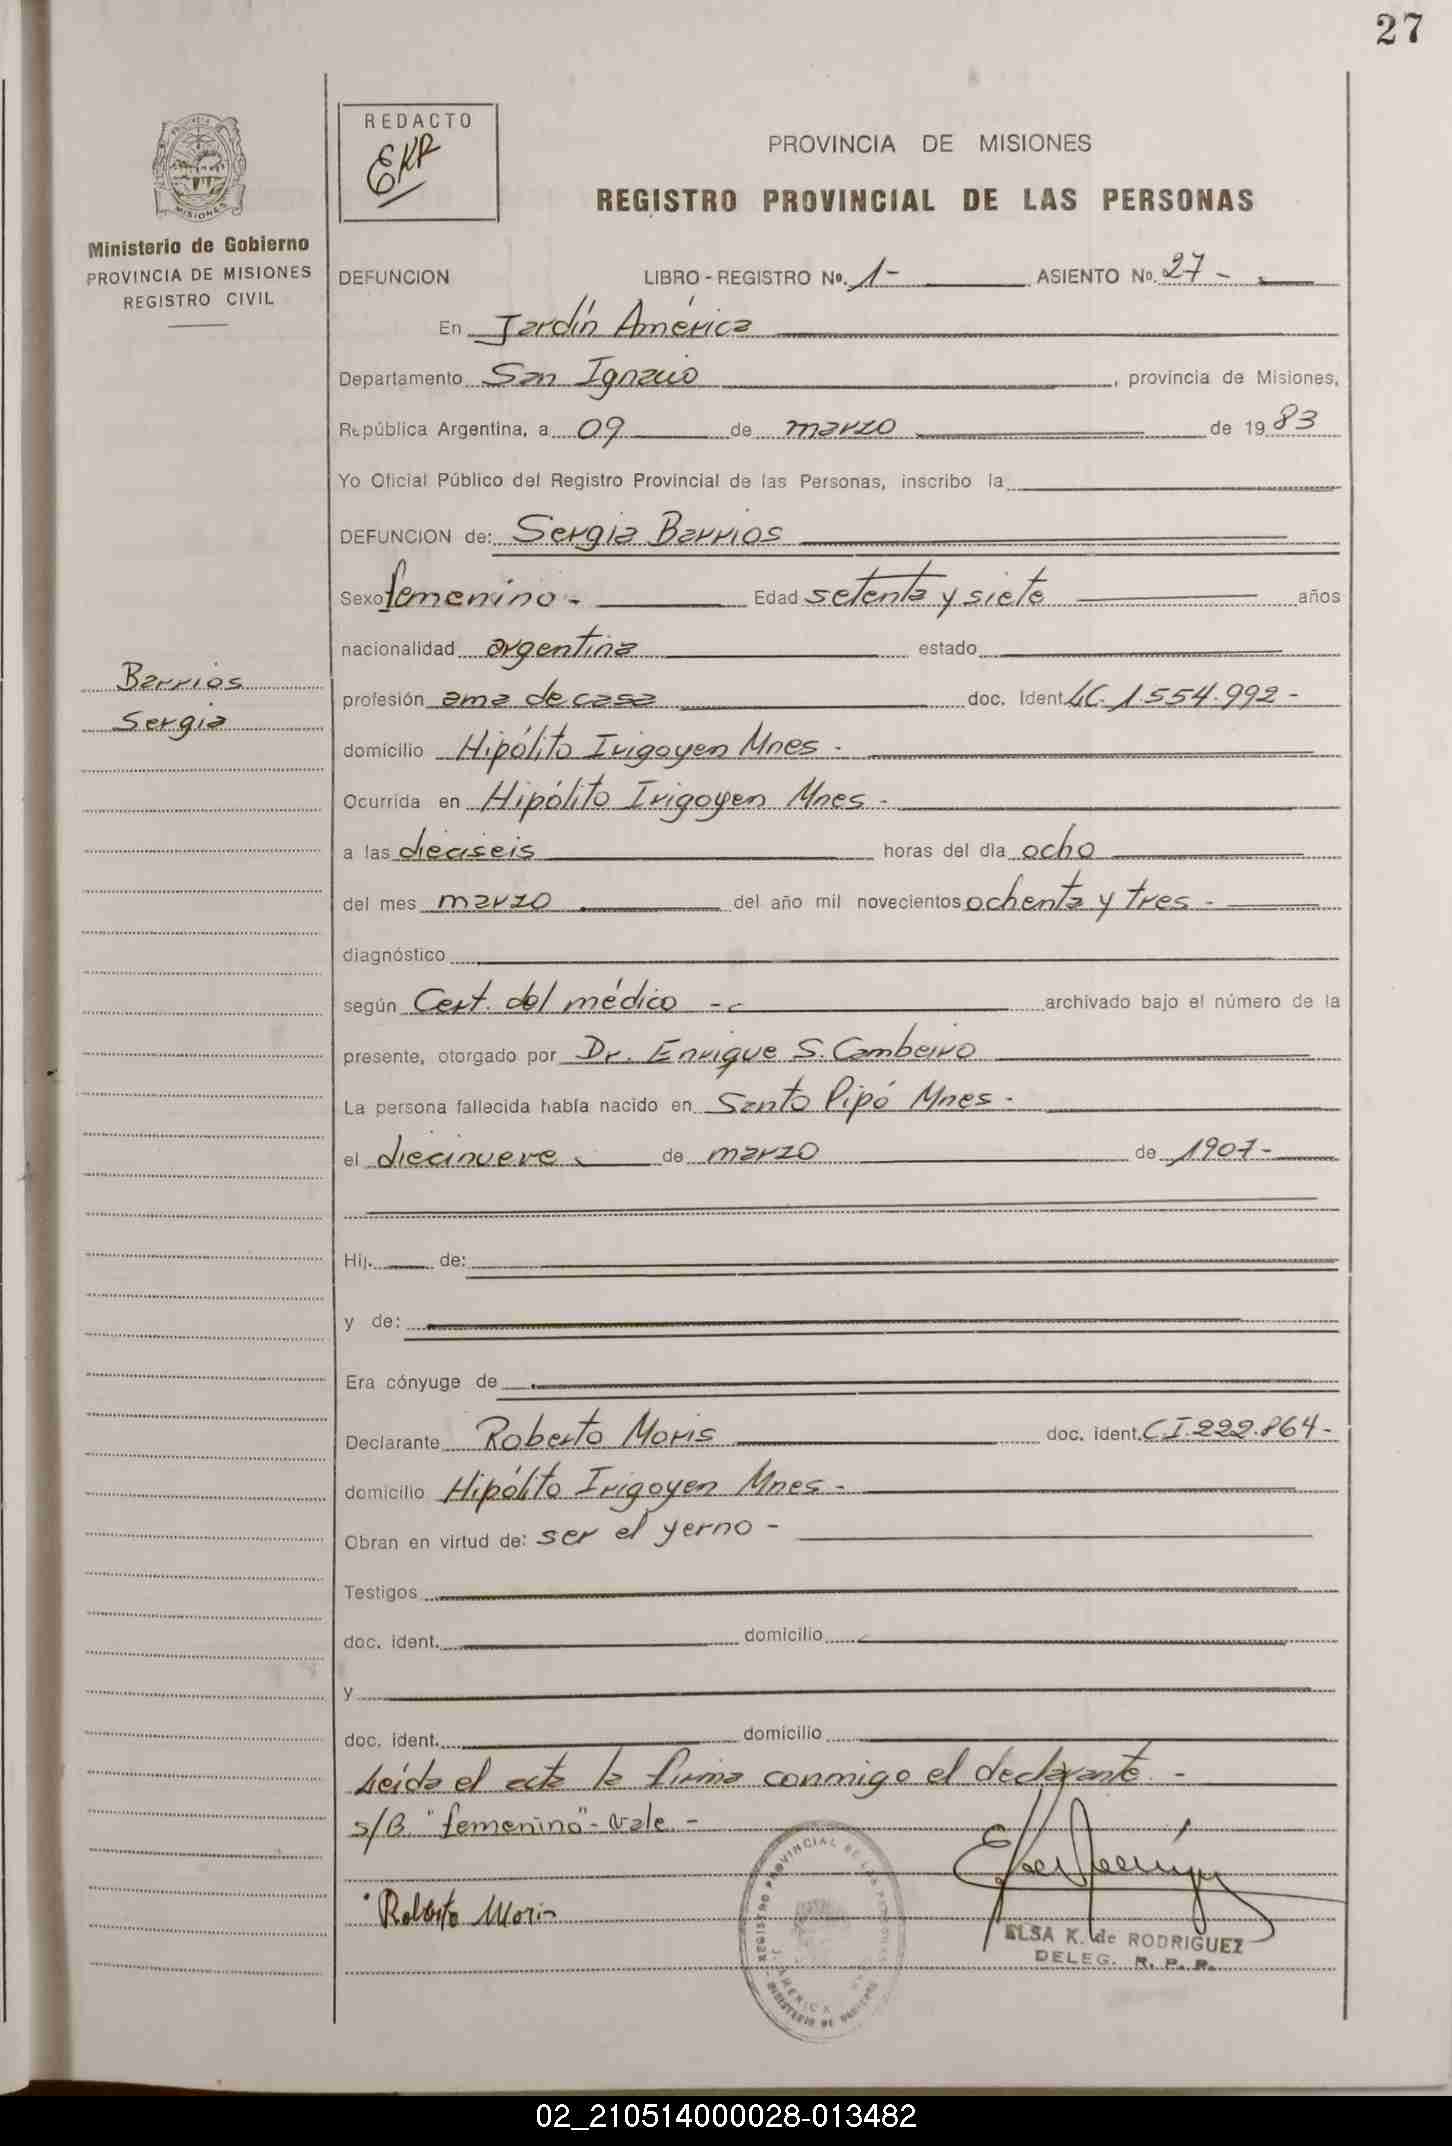 27
REDACTO
EKR
PROVINCIA DE MISIONES
REGISTRO PROVINCIAL DE LAS PERSONAS
PROVINCIA
MISIONES
Ministerio de Gobierno
PROVINCIA DE MISIONES
REGISTRO CIVIL
DEFUNCION LIBRO - REGISTRO No. 1- ASIENTO No. 27 -
En Jardín América
Departamento San Ignacio, provincia de Misiones,
República Argentina, a 09 de marzo de 1983
Yo Oficial Público del Registro Provincial de las Personas, inscribo la
DEFUNCION de: Sergia Barrios
Sexo femenino - Edad setenta y siete años
nacionalidad argentina estado
Barrios
Sergia
profesión ama de casa doc. Ident LC. 1.554.992 -
domicilio Hipólito Irigoyen Mnes -
Ocurrida en Hipólito Irigoyen Mnes -
a las dieciseis horas del día ocho
del mes marzo del año mil novecientos ochenta y tres -
diagnóstico
según Cert. del médico - archivado bajo el número de la
presente, otorgado por Dr. Enrique S. Cambeiro
La persona fallecida había nacido en Santo Pipó Mnes -
el diecinueve de marzo de 1907 -
Hij. de:
y de:
Era cónyuge de
Declarante Roberto Moris doc. ident. C.I. 222.864 -
domicilio Hipólito Irigoyen Mnes -
Obran en virtud de: ser el yerno -
Testigos
doc. ident. domicilio
y
doc. ident. domicilio
Leída el acta la firma conmigo el declarante -
s/B "femenino" - vale -
Roberto Moris
REGISTRO PROVINCIAL DE LAS PERSONAS
J. AMERICA
MINISTERIO DE GOBIERNO
ELSA K. de RODRIGUEZ
DELEG. R. P. P.
02_210514000028-013482